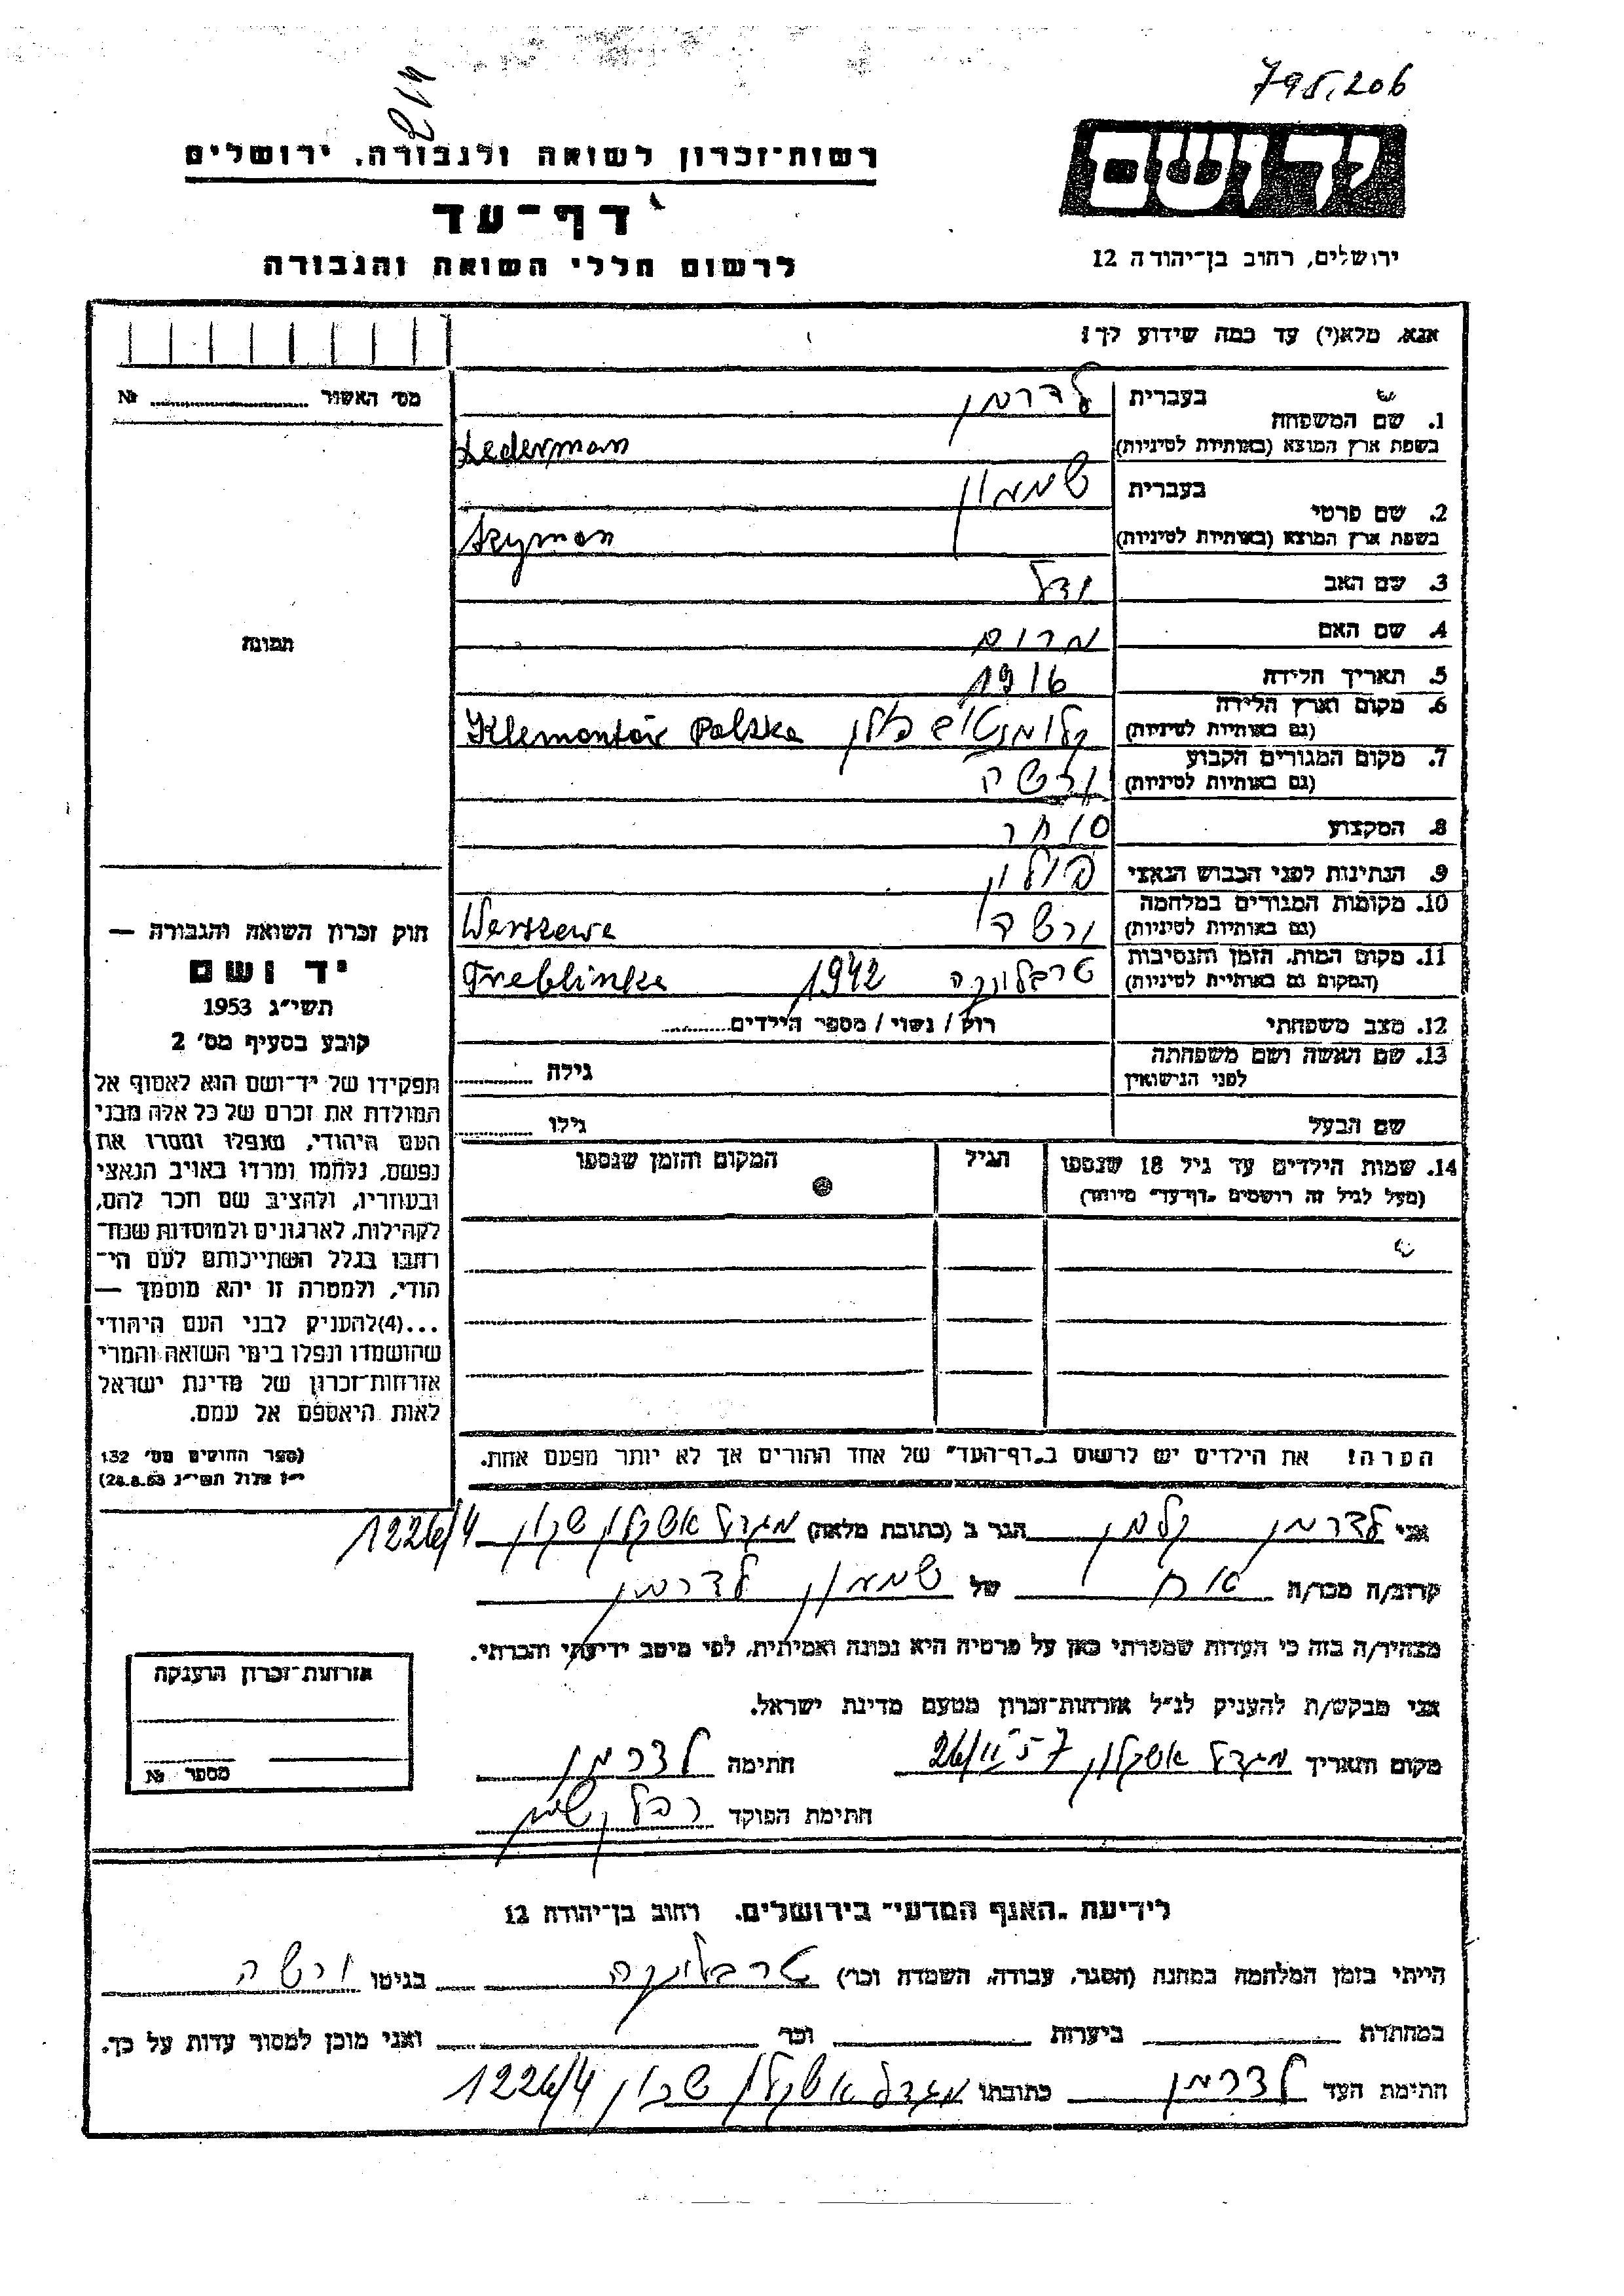 795,206
214
יד ושם
רשות־זכרון לשואה ולגבורה, ירושלים
דף־עד
לרשום חללי השואה והגבורה
ירושלים, רחוב בן־יהודה 12
אנא, מלא(י) עד כמה שידוע לך:
מס׳ האשור № ............
1. שם המשפחה בעברית לדרמן
בשפת ארץ המוצא (באותיות לטיניות) Lederman
2. שם פרטי בעברית שמעון
בשפת ארץ המוצא (באותיות לטיניות) Szymon
3. שם האב
4. שם האם מרים
5. תאריך הלידה 1916
6. מקום וארץ הלידה (גם באותיות לטיניות) פולין Klemontów Polska
7. מקום המגורים הקבוע (גם באותיות לטיניות) ורשה
8. המקצוע סוחר
9. הנתינות לפני הכבוש הנאצי פולין
10. מקומות המגורים במלחמה (גם באותיות לטיניות) ורשה Warszawa
11. מקום המות, הזמן והנסיבות (המקום גם באותיות לטיניות) טרבלינקה 1942 Treblinka
12. מצב משפחתי רווק / נשוי / מספר הילדים............
13. שם האשה ושם משפחתה לפני הנישואין גילה ............
שם הבעל גילו ............
14. שמות הילדים עד גיל 18 שנספו (מעל לגיל זה רושמים „דף־עד״ מיוחד)
הגיל
המקום והזמן שנספו
הערה! את הילדים יש לרשום ב„דף־העד״ של אחד ההורים אך לא יותר מפעם אחת.
תמונה
חוק זכרון השואה והגבורה —
יד ושם
תשי״ג 1953
קובע בסעיף מס׳ 2
תפקידו של יד־ושם הוא לאסוף אל
המולדת את זכרם של כל אלה מבני
העם היהודי, שנפלו ומסרו את
נפשם, נלחמו ומרדו באויב הנאצי
ובעוזריו, ולהציב שם וזכר להם,
לקהילות, לארגונים ולמוסדות שנח־
רבו בגלל השתייכותם לעם הי־
הודי, ולמטרה זו יהא מוסמך —
...(4)להעניק לבני העם היהודי
שהושמדו ונפלו בימי השואה והמרי
אזרחות־זכרון של מדינת ישראל
לאות היאספם אל עמם.
(ספר החוקים מס׳ 132
י״ז אלול תשי״ג 28.8.53)
אני לדרמן קלמן הגר ב (כתובת מלאה) מגדל אשקלון שכון 1226/4
קרוב/ה מכר/ה אח של שמעון לדרמן
מצהיר/ה בזה כי העדות שמסרתי כאן על פרטיה היא נכונה ואמיתית, לפי מיטב ידיעתי והכרתי.
אני מבקש/ת להעניק לנ״ל אזרחות־זכרון מטעם מדינת ישראל.
מקום ותאריך מגדל אשקלון 26/II 57 חתימה לדרמן
חתימת הפוקד
אזרחות־זכרון הוענקה
מספר №
לידיעת „האגף המדעי״ בירושלים, רחוב בן־יהודה 12
הייתי בזמן המלחמה במחנה (הסגר, עבודה, השמדה וכו׳) טרבלינקה בגיטו ורשה
במחתרת ביערות וכו׳ ואני מוכן למסור עדות על כך.
חתימת העד לדרמן כתובתו מגדל אשקלון שכון 1226/4